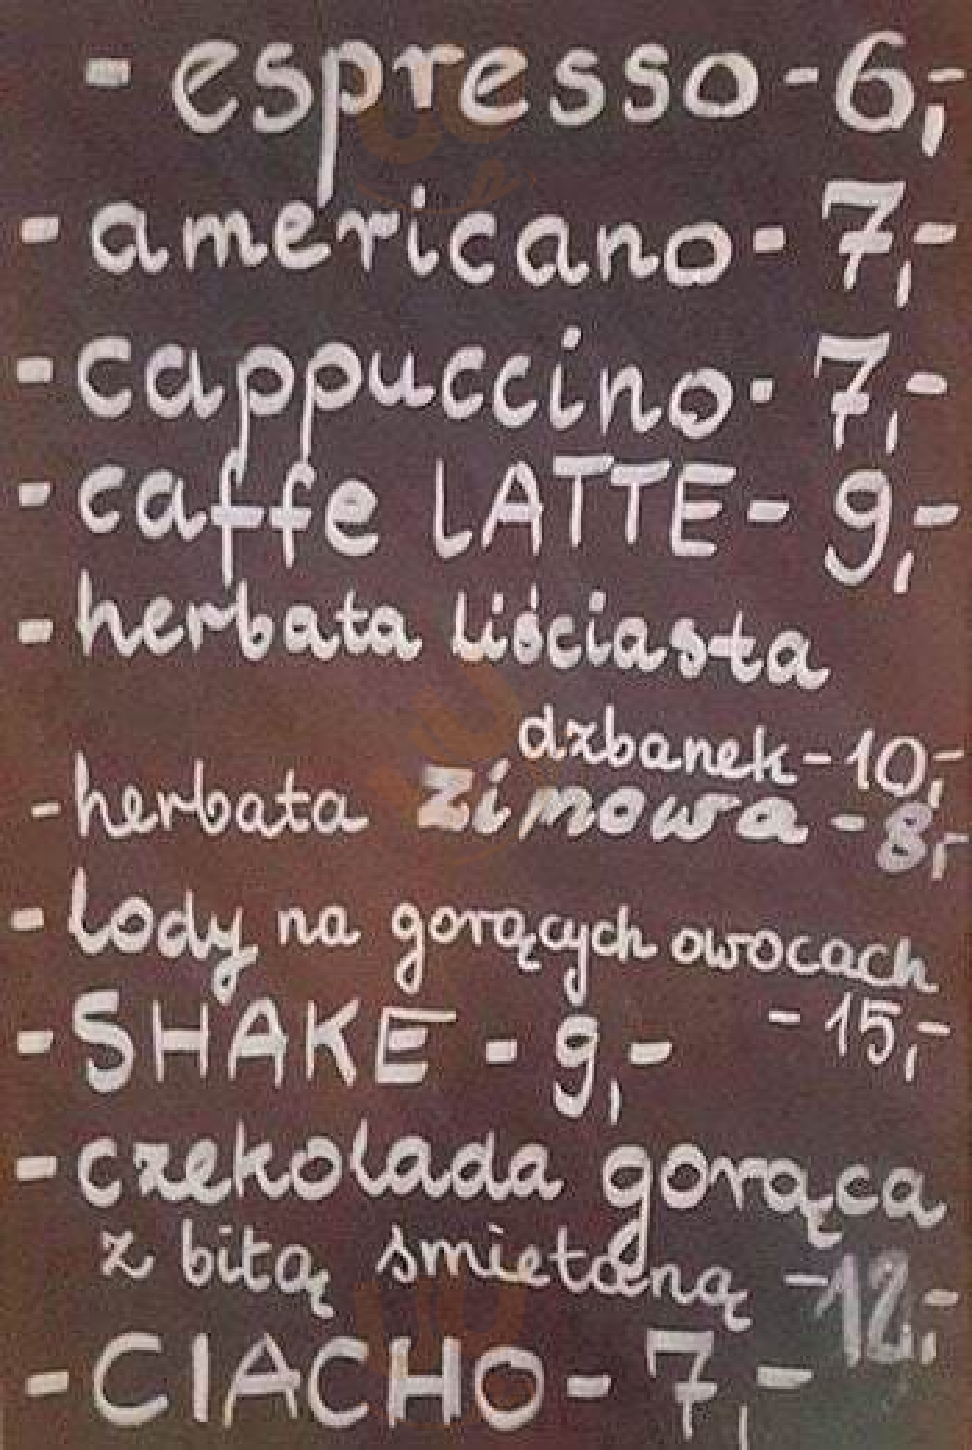 - espresso - 6,-
- americano - 7,-
- cappuccino - 7,-
- caffe LATTE - 9,-
- herbata liściasta
dzbanek - 10,-
- herbata zimowa - 8,-
- lody na gorących owocach
- 15,-
- SHAKE - 9,-
- czekolada gorąca
z bitą śmietaną - 12,-
- CIACHO - 7,-